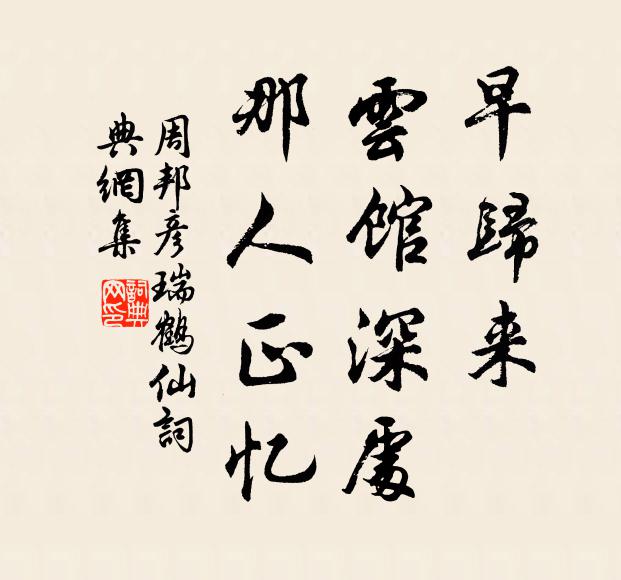 早歸来
雲館深處
那人正忆
周邦彦瑞鶴仙詞
典網集
詞典
网印